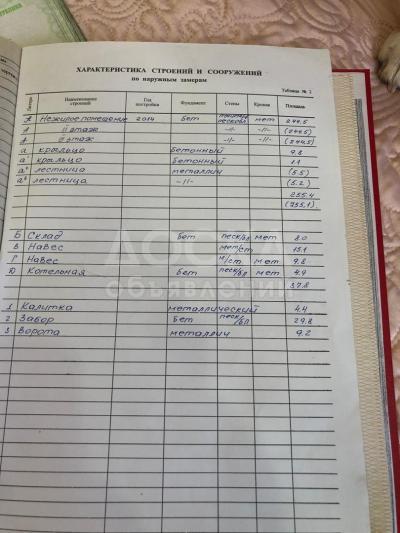 ХАРАКТЕРИСТИКА СТРОЕНИЙ И СООРУЖЕНИЙ
по наружным замерам
Таблица № 2
Литера Наименование строений Год постройки Фундамент Стены Кровля Площадь
А Нежилое помещение 2014 Бет мет 244.5
А II этаж -//- -//- (244.5)
А этаж -//- -//- (244.5)
а крыльцо бетонный 9.8
а' крыльцо Бетонный 1.1
а" лестница металлич (5.5)
лестница -//- (5.2)
255.4
(755.1)
Б Склад Бет песк/бл мет 8.0
В Навес мет/ст мет 15.1
Г Навес м/ст мет 9.8
Котельная Бет песк/бл мет 4.9
37.8
1 Калитка металлический 4.4
2 Забор Бет песк/бл 29.8
3 Ворота металлич 9.2
ДОСКА
объявлений